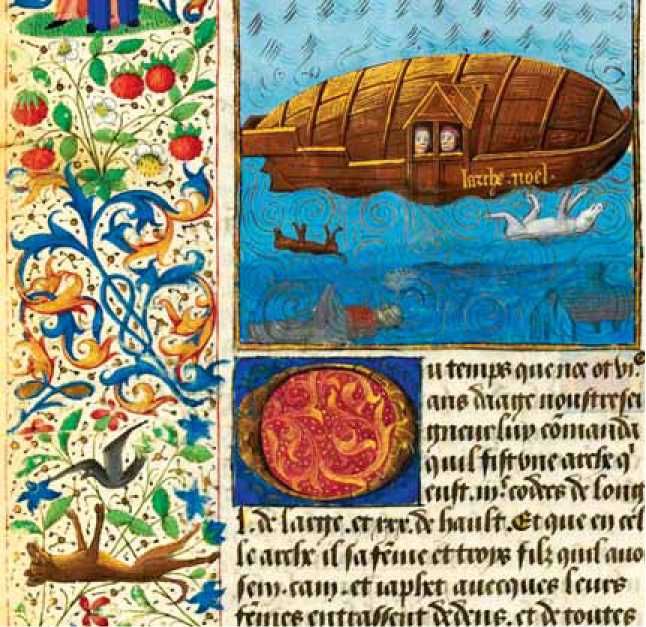 larche noel.
Ou temps que noe ot vi.c
ans daage noustre sei
gneur luy cōmanda
quil fist vne arche q'
eust .iii.c codes de long
l. de large. et xxx. de hault. Et que en cel
le arche il sa fēme et troys filz quil auo
sem. cam. et iaphet auecques leurs
fēmes entrassent dedens. et de toutes